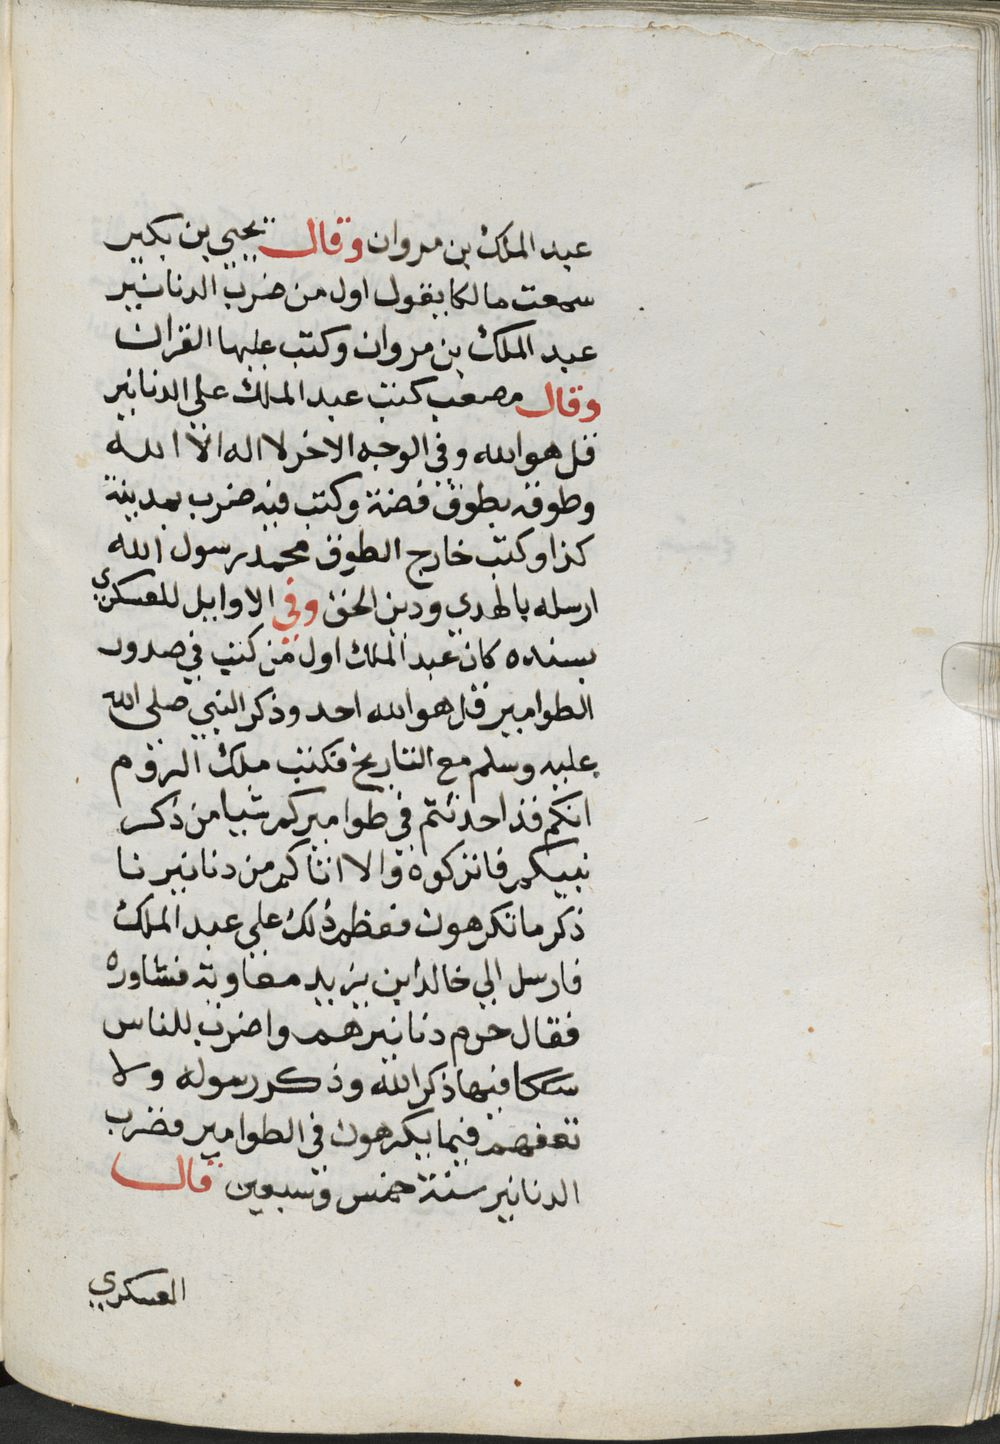 عبد الملك بن مروان وقال يحيي بن بكير
سمعت مالكا يقول اول من ضرب الدنانير
عبد الملك بن مروان وكتب عليها القران
وقال مصعب كتب عبد الملك علي الدنانير
قل هو الله وفي الوجه الاخر لا اله الا الله
وطوقه بطوق فضة وكتب فيه ضرب بمدينة
كذا وكتب خارج الطوق محمد رسول الله
ارسله بالهدي ودين الحق وفي الاوايل للعسكري
بسنده كان عبد الملك اول من كتب في صدور
الطوامير قل هو الله احد وذكر النبي صلي الله
عليه وسلم مع التاريخ فكتب ملك الروم
انكم قد احدثتم في طواميركم شيا من ذكر
نبيكم فاتركوه والا اتاكم من دنانيرنا
ذكر ما تكرهون فعظم ذلك علي عبد الملك
فارسل الي خالد ابن يزيد معاوية فشاوره
فقال حرم دنانيرهم واضرب للناس
سككا فيها ذكر الله وذكر رسوله ولا
تعفهم فيما يكرهون في الطوامير فضرب
الدنانير سنة خمس وسبعين قال
العسكري